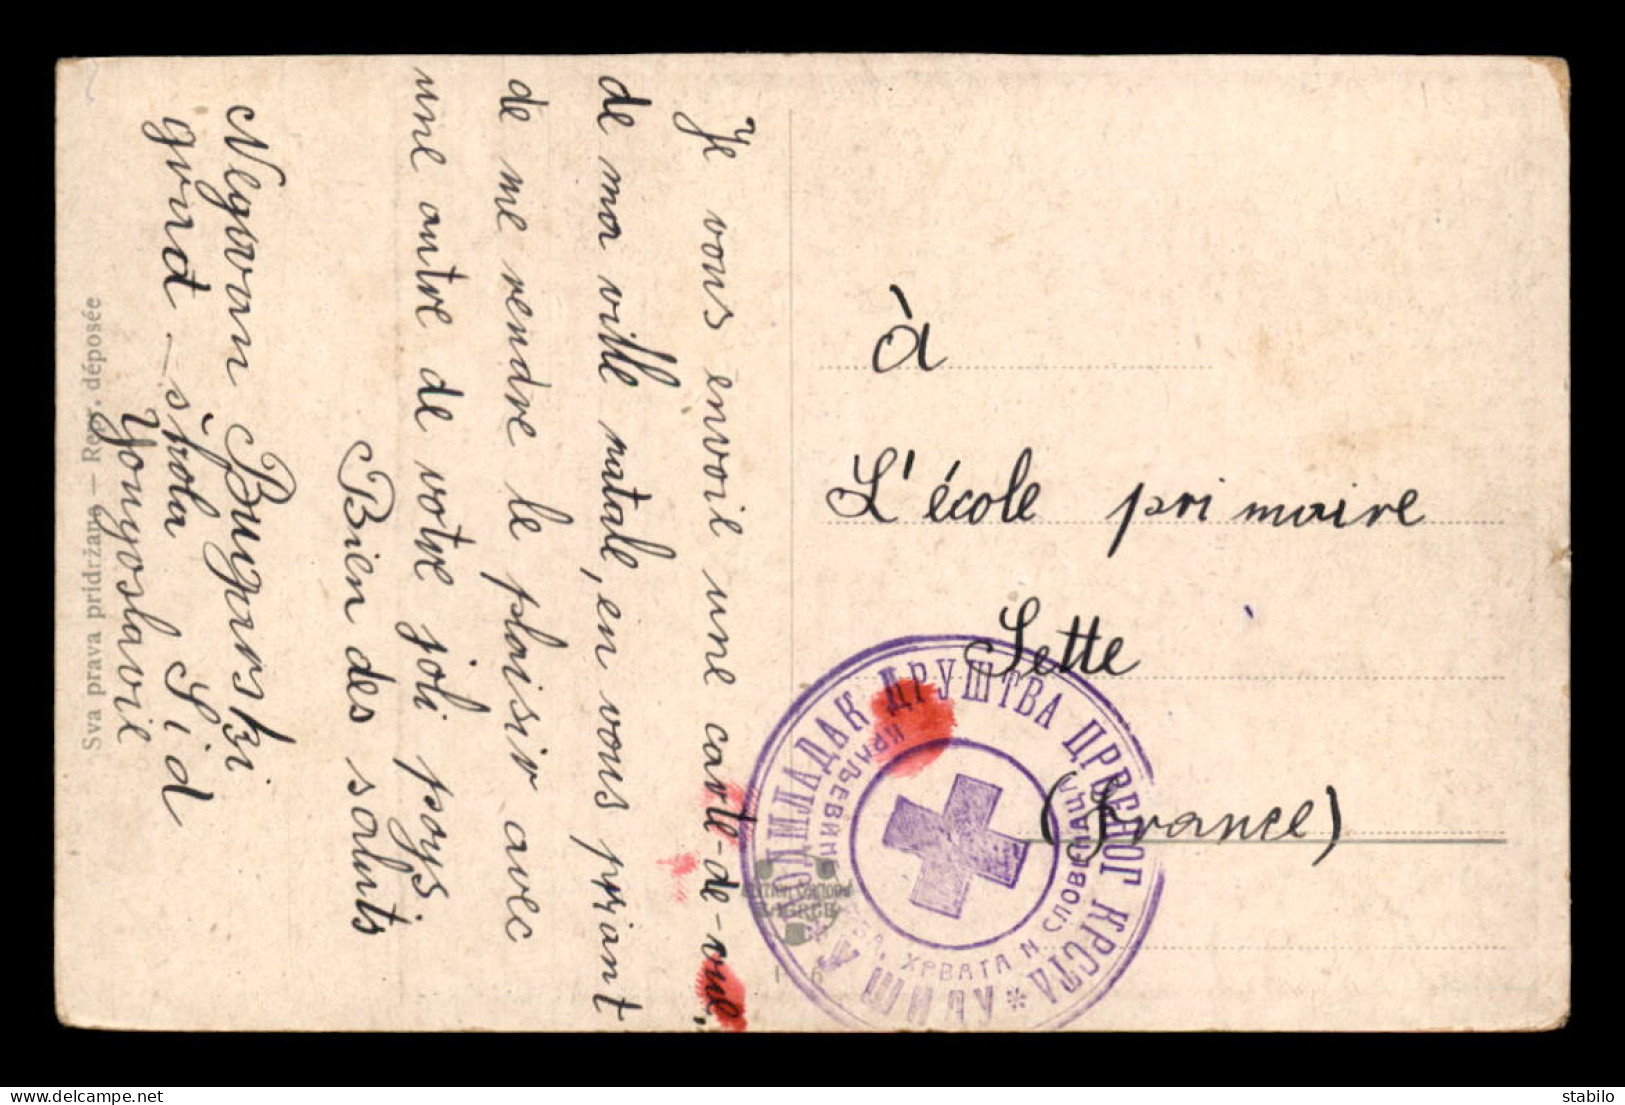 Je vous envoie une carte-de-vue,
de ma ville natale, en vous priant
de me rendre le plaisir avec
une autre de votre joli pays.
Bien des saluts
Negovan Bugarski
grad - škola Šid
Yougoslavie
Sva prava pridržana — Repr. déposée
à
L'école primaire
Sette
(France)
ПОДМЛАДАК ДРУШТВА ЦРВЕНОГ КРСТА
* У ШИДУ *
КРАЉЕВИНЕ ХРВАТА И СЛОВЕНАЦА
ZAGREB